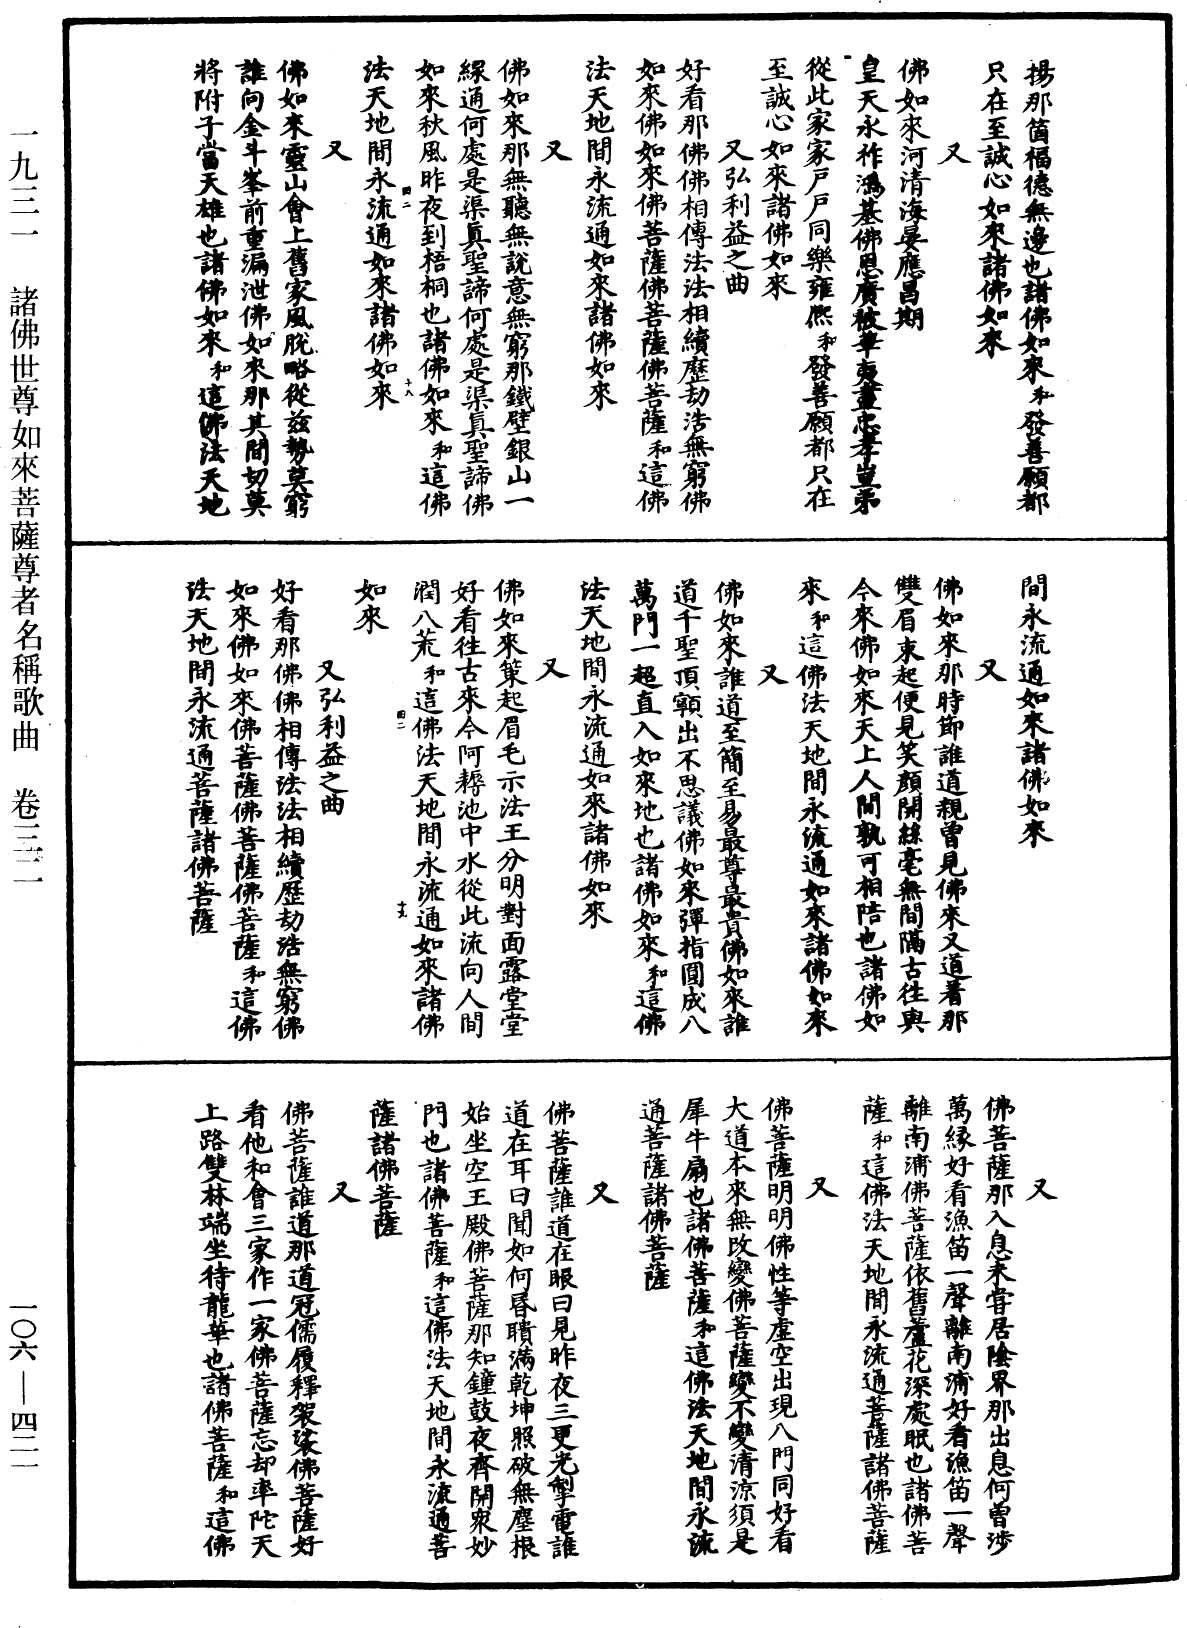 揚那箇福德無邊也諸佛如來和發善願都
只在至誠心如來諸佛如來
又
佛如來河清海晏應昌期
皇天永祚鴻基佛恩廣被華夷盡忠孝豈弟
從此家家戶戶同樂雍熈和發善願都只在
至誠心如來諸佛如來
又弘利益之曲
好看那佛佛相傳法法相續歷劫浩無窮佛
如來佛如來佛菩薩佛菩薩佛菩薩和這佛
法天地間永流通如來諸佛如來
又
佛如來那無聽無說意無窮那鐵壁銀山一
線通何處是渠真聖諦何處是渠真聖諦佛
如來秋風昨夜到梧桐也諸佛如來和這佛
四二
十八
法天地間永流通如來諸佛如來
又
佛如來靈山會上舊家風脫略從茲勢莫窮
誰向金斗峯前重漏泄佛如來那其間切莫
將附子當天雄也諸佛如來和這佛法天地
間永流通如來諸佛如來
又
佛如來那時節誰道親曾見佛來又道着那
雙眉東起便見笑顏開絲毫無間隔古往與
今來佛如來天上人間孰可相陪也諸佛如
來和這佛法天地間永流通如來諸佛如來
又
佛如來誰道至簡至易最尊最貴佛如來誰
道千聖頂𩕳出不思議佛如來彈指圓成八
萬門一超直入如來地也諸佛如來和這佛
法天地間永流通如來諸佛如來
又
佛如來策起眉毛示法王分明對面露堂堂
好看往古來今阿耨池中水從此流向人間
潤八荒和這佛法天地間永流通如來諸佛
四二
十九
如來
又弘利益之曲
好看那佛佛相傳法法相續歷劫浩無窮佛
如來佛如來佛菩薩佛菩薩佛菩薩和這佛
法天地間永流通菩薩諸佛菩薩
又
佛菩薩那入息未嘗居陰界那出息何曾涉
萬緣好看漁笛一聲離南浦好看漁笛一聲
離南浦佛菩薩依舊蘆花深處眠也諸佛菩
薩和這佛法天地間永流通菩薩諸佛菩薩
又
佛菩薩明明佛性等虛空出現八門同好看
大道本來無改變佛菩薩變不變清涼須是
犀牛扇也諸佛菩薩和這佛法天地間永流
通菩薩諸佛菩薩
又
佛菩薩誰道在眼曰見昨夜三更光掣電誰
道在耳曰聞如何昏瞶滿乾坤照破無塵根
始坐空王殿佛菩薩那知鐘鼓夜齊開眾妙
門也諸佛菩薩和這佛法天地間永流通菩
薩諸佛菩薩
又
佛菩薩誰道那道冠儒履釋袈裟佛菩薩好
看他和會三家作一家佛菩薩忘却率陀天
上路雙林端坐待龍華也諸佛菩薩和這佛
一九三二 諸佛世尊如來菩薩尊者名稱歌曲 卷三二
一〇六—四二一